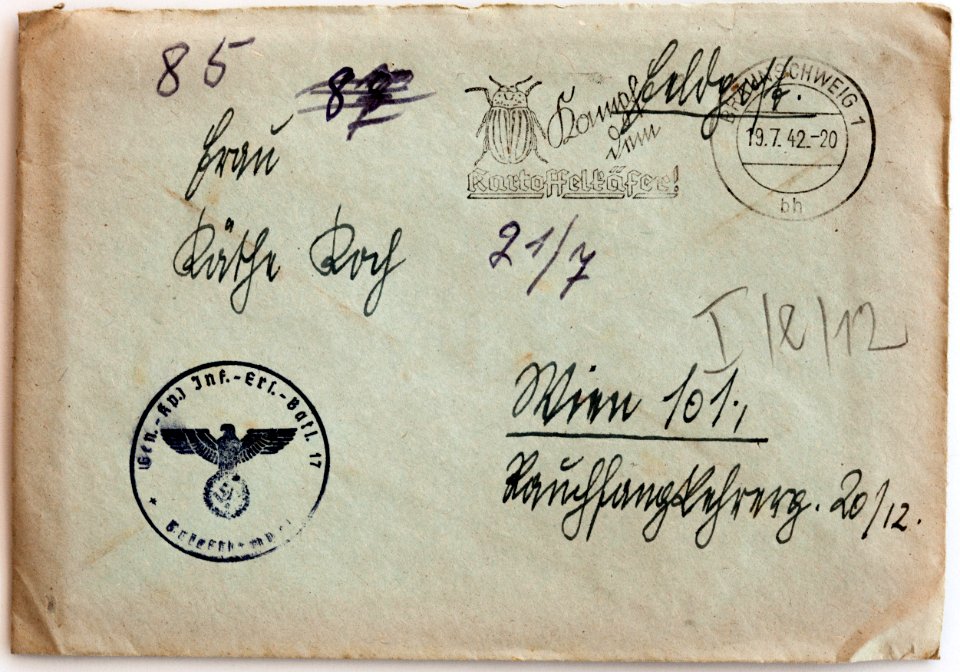 85
Feldpost.
Kampf
dem
Kartoffelkäfer!
BRAUNSCHWEIG 1
19.7.42.-20
bh
Frau
Käthe Koch
21/7
I/2/12
Gen.-Kp.) Inf.-Ers.-Batl. 17
Briefstempel
Wien 101.,
Rauchfangkehrerg. 20/12.